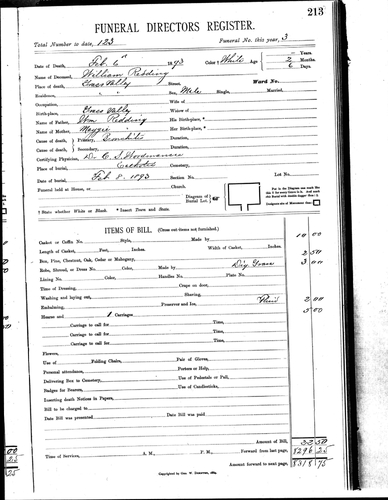 213
FUNERAL DIRECTORS REGISTER.
Total Number to date, 123 Funeral No. this year, 3
Date of Death, Feb. 6th 1893 Color † White Age – Years.
2 Months
6 Days.
Name of Deceased, William Redding
Place of death, Grass Valley Street. Ward No.
Residence, Sex, Male Single, Married.
Occupation, Wife of
Birth-place, Grass Valley Widow of
Name of Father, Wm Redding His Birth-place, *
Name of Mother, Maggie Her Birth-place, *
Cause of death, Primary, Bronchitis Duration,
Cause of death, Secondary, Duration,
Certifying Physician, Dr. C. S. Duration,
Place of burial, Lot No.
Date of burial, Feb. 8. 1893 Section No.
Funeral held at House, or Church.
Diagram of Burial Lot
† State whether White or Black. * Insert Town and State.
ITEMS OF BILL. (Cross out items not furnished.)
Casket or Coffin No. Style, Made by 10 00
Length of Casket, Feet, Inches. Width of Casket, Inches.
Box, Pine, Chestnut, Oak, Cedar or Mahogany, 2 50
Robe, Shroud, or Dress No. Color, Made by Dig. Grave 3 00
Lining No. Color, Handles No. Plate No.
Time of Dressing, Crape on door,
Washing and laying out, Shaving,
Embalming, Preserver and Ice, 2 00
Hearse and 1 Carriages 5 00
Carriage to call for Time,
Carriage to call for Time,
Carriage to call for Time,
Carriage to call for Time,
Flowers,
Use of Folding Chairs, Pair of Gloves,
Personal attendance, Porters or Help,
Delivering Box to Cemetery, Use of Pedestals or Pall,
Badges for Bearers, Use of Candlesticks,
Inserting death Notices in Papers,
Bill to be charged to
Date Bill was presented Date Bill was paid
Amount of Bill, 22 50
Time of Services, A. M., P. M. Forward from last page, 8296 25
Amount forward to next page, 8318 75